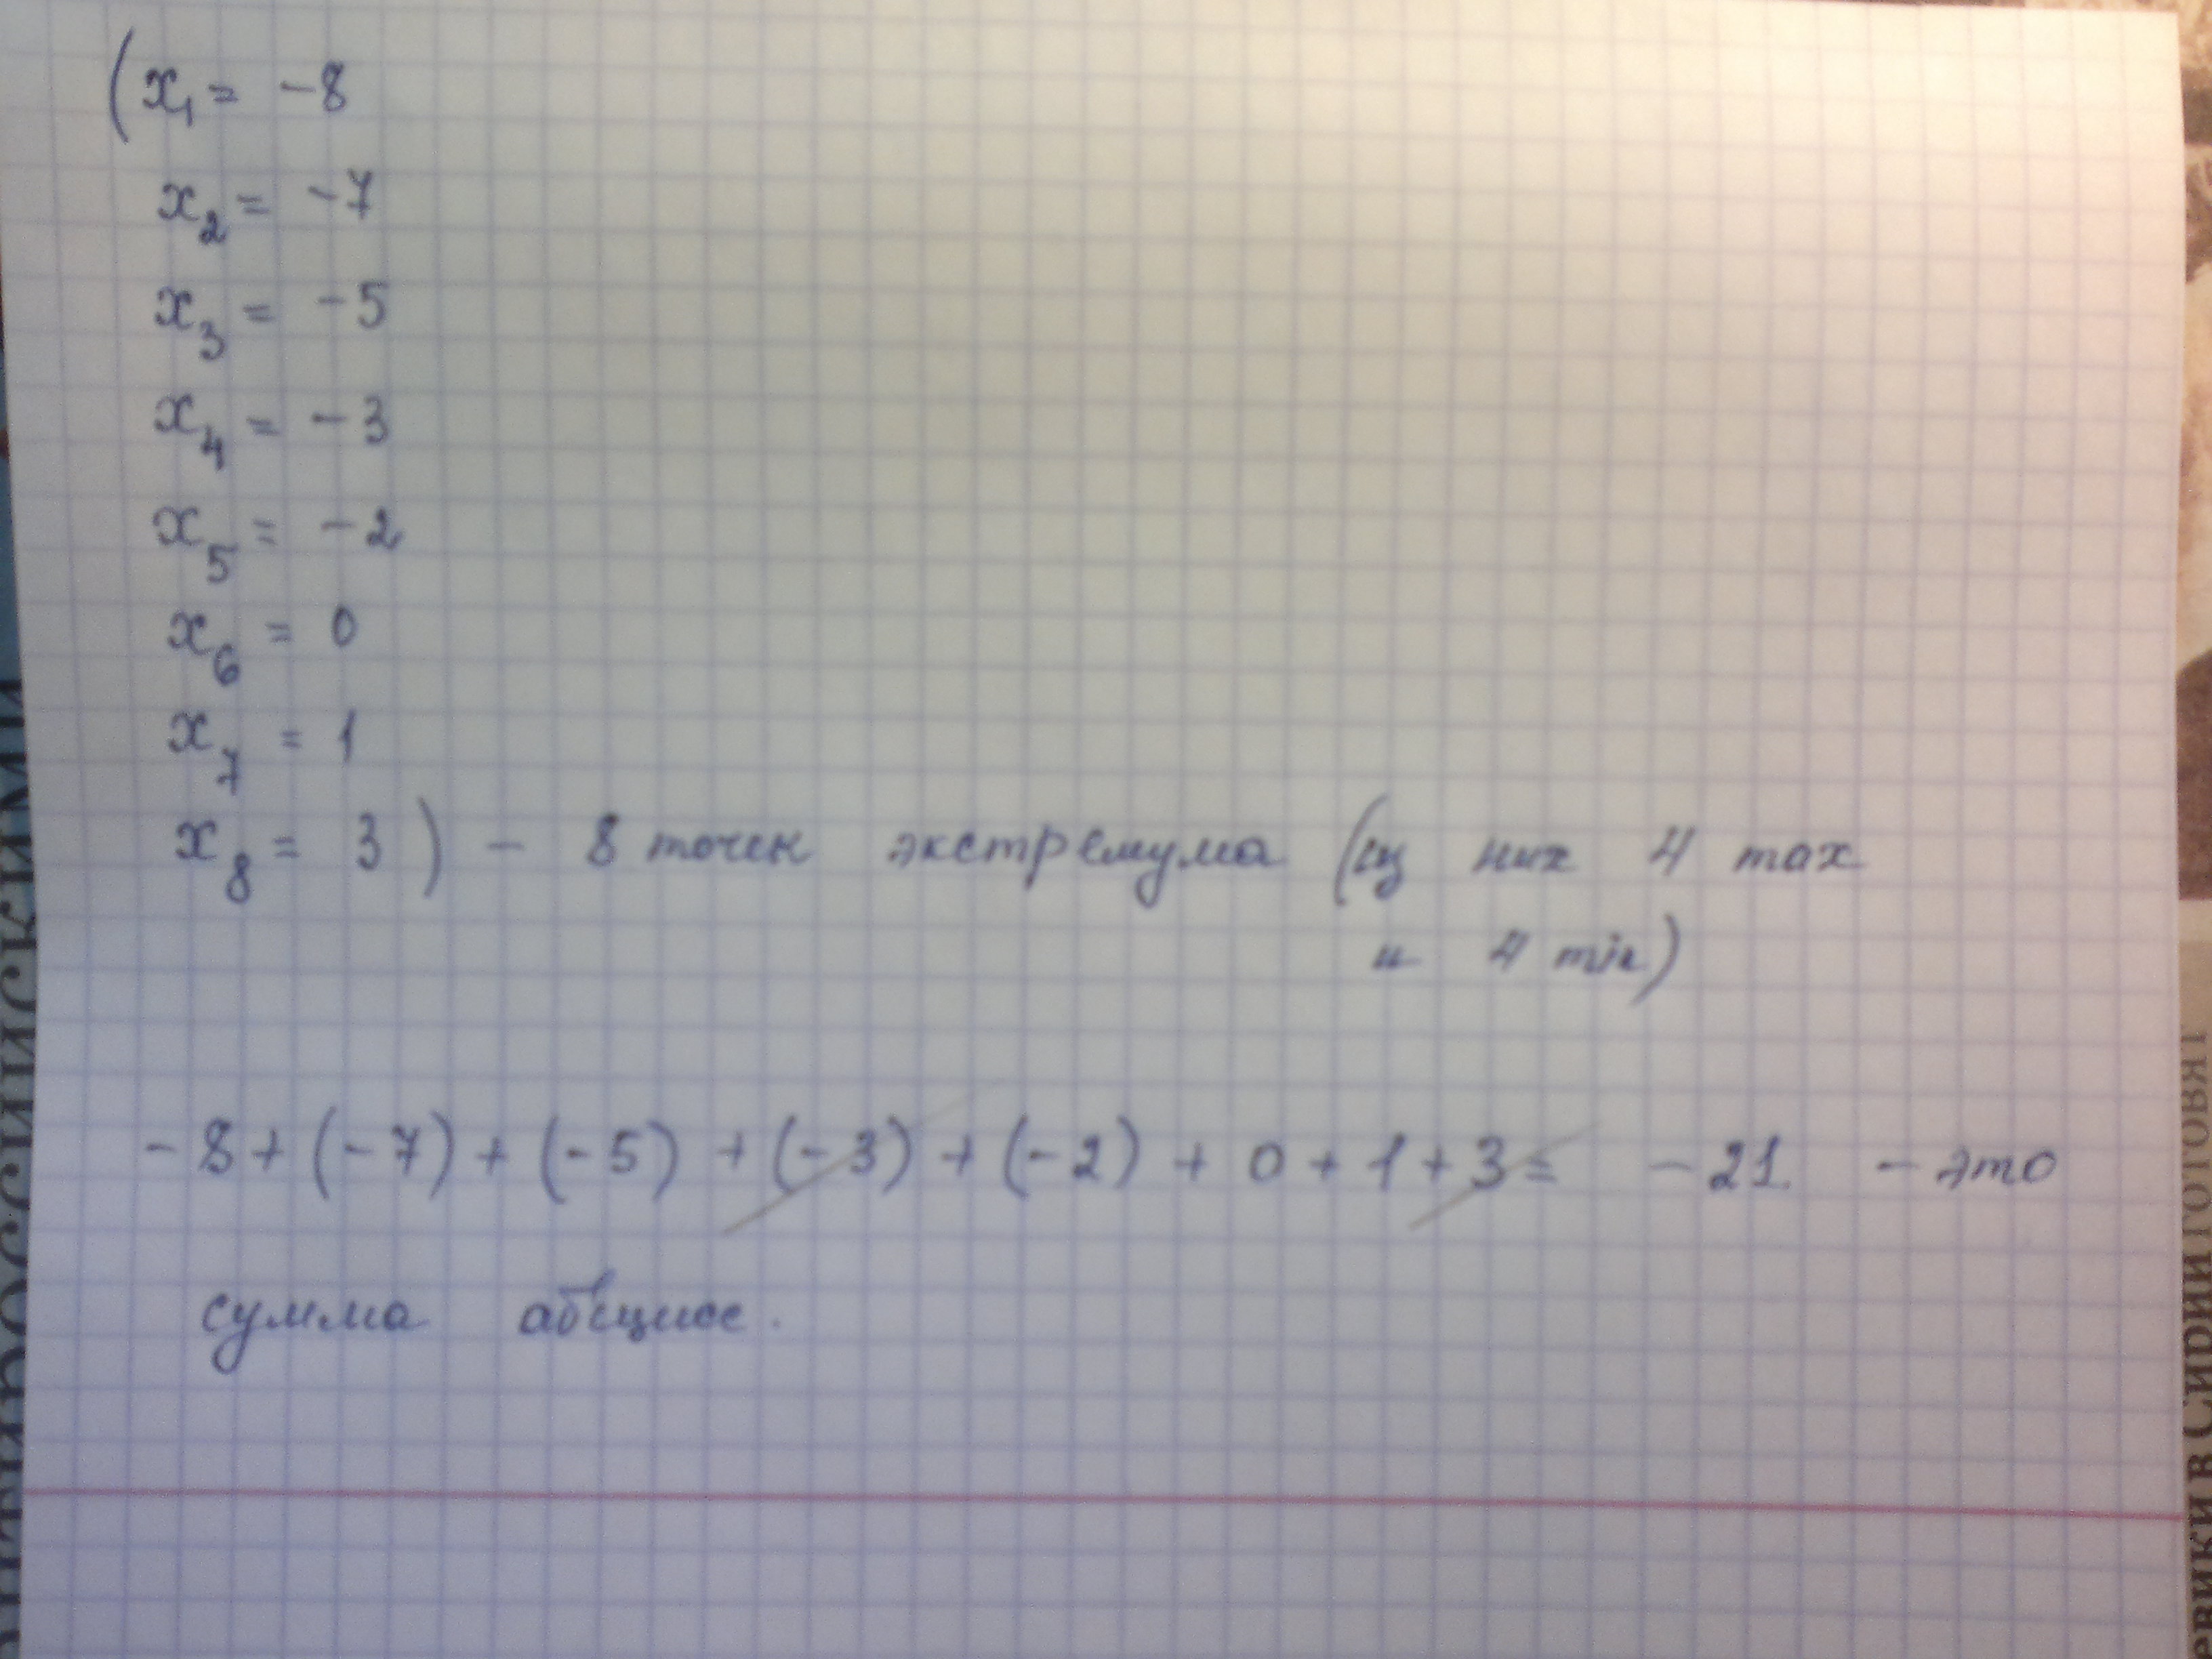 (x₁ = -8
x₂ = -7
x₃ = -5
x₄ = -3
x₅ = -2
x₆ = 0
x₇ = 1
x₈ = 3) - 8 точек экстремума (из них 4 max
и 4 min)
-8 + (-7) + (-5) + (-3) + (-2) + 0 + 1 + 3 = -21 - это
сумма абсцисс.
евики в Сирии готовят